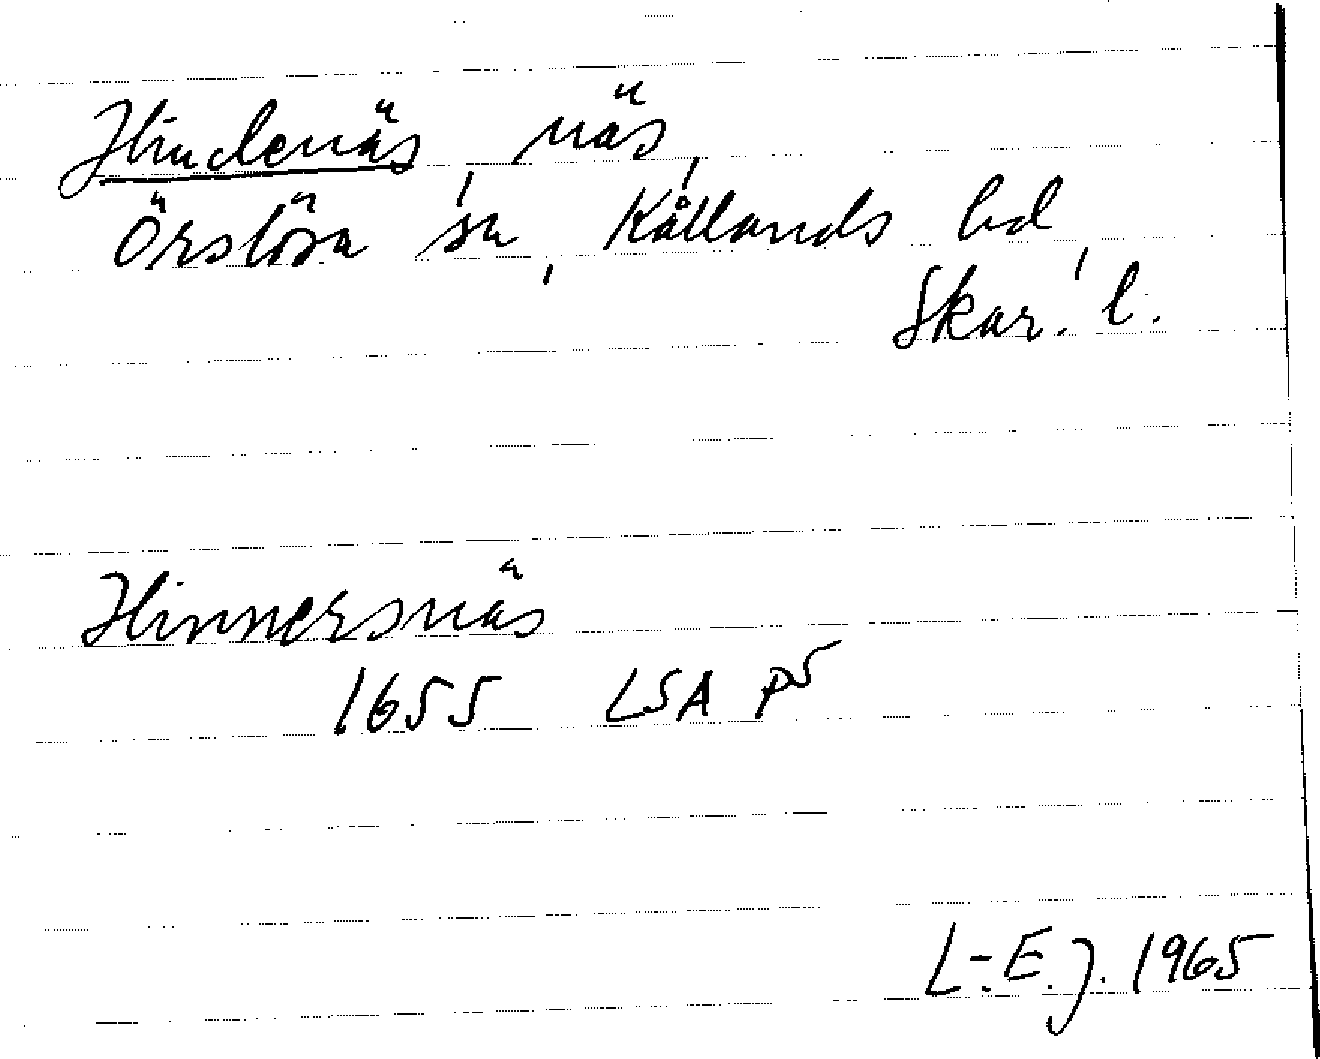 Hindenäs, näs,
Örslösa sn, Kållands hd,
Skar. l.
Hinnersnäs
1655 LSA P5
L.-E. J. 1965